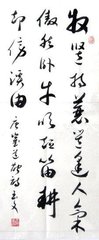 牧竖持蓑笠逢人气
傲然卧牛吹短笛耕
却傍溪田 唐崔道融诗